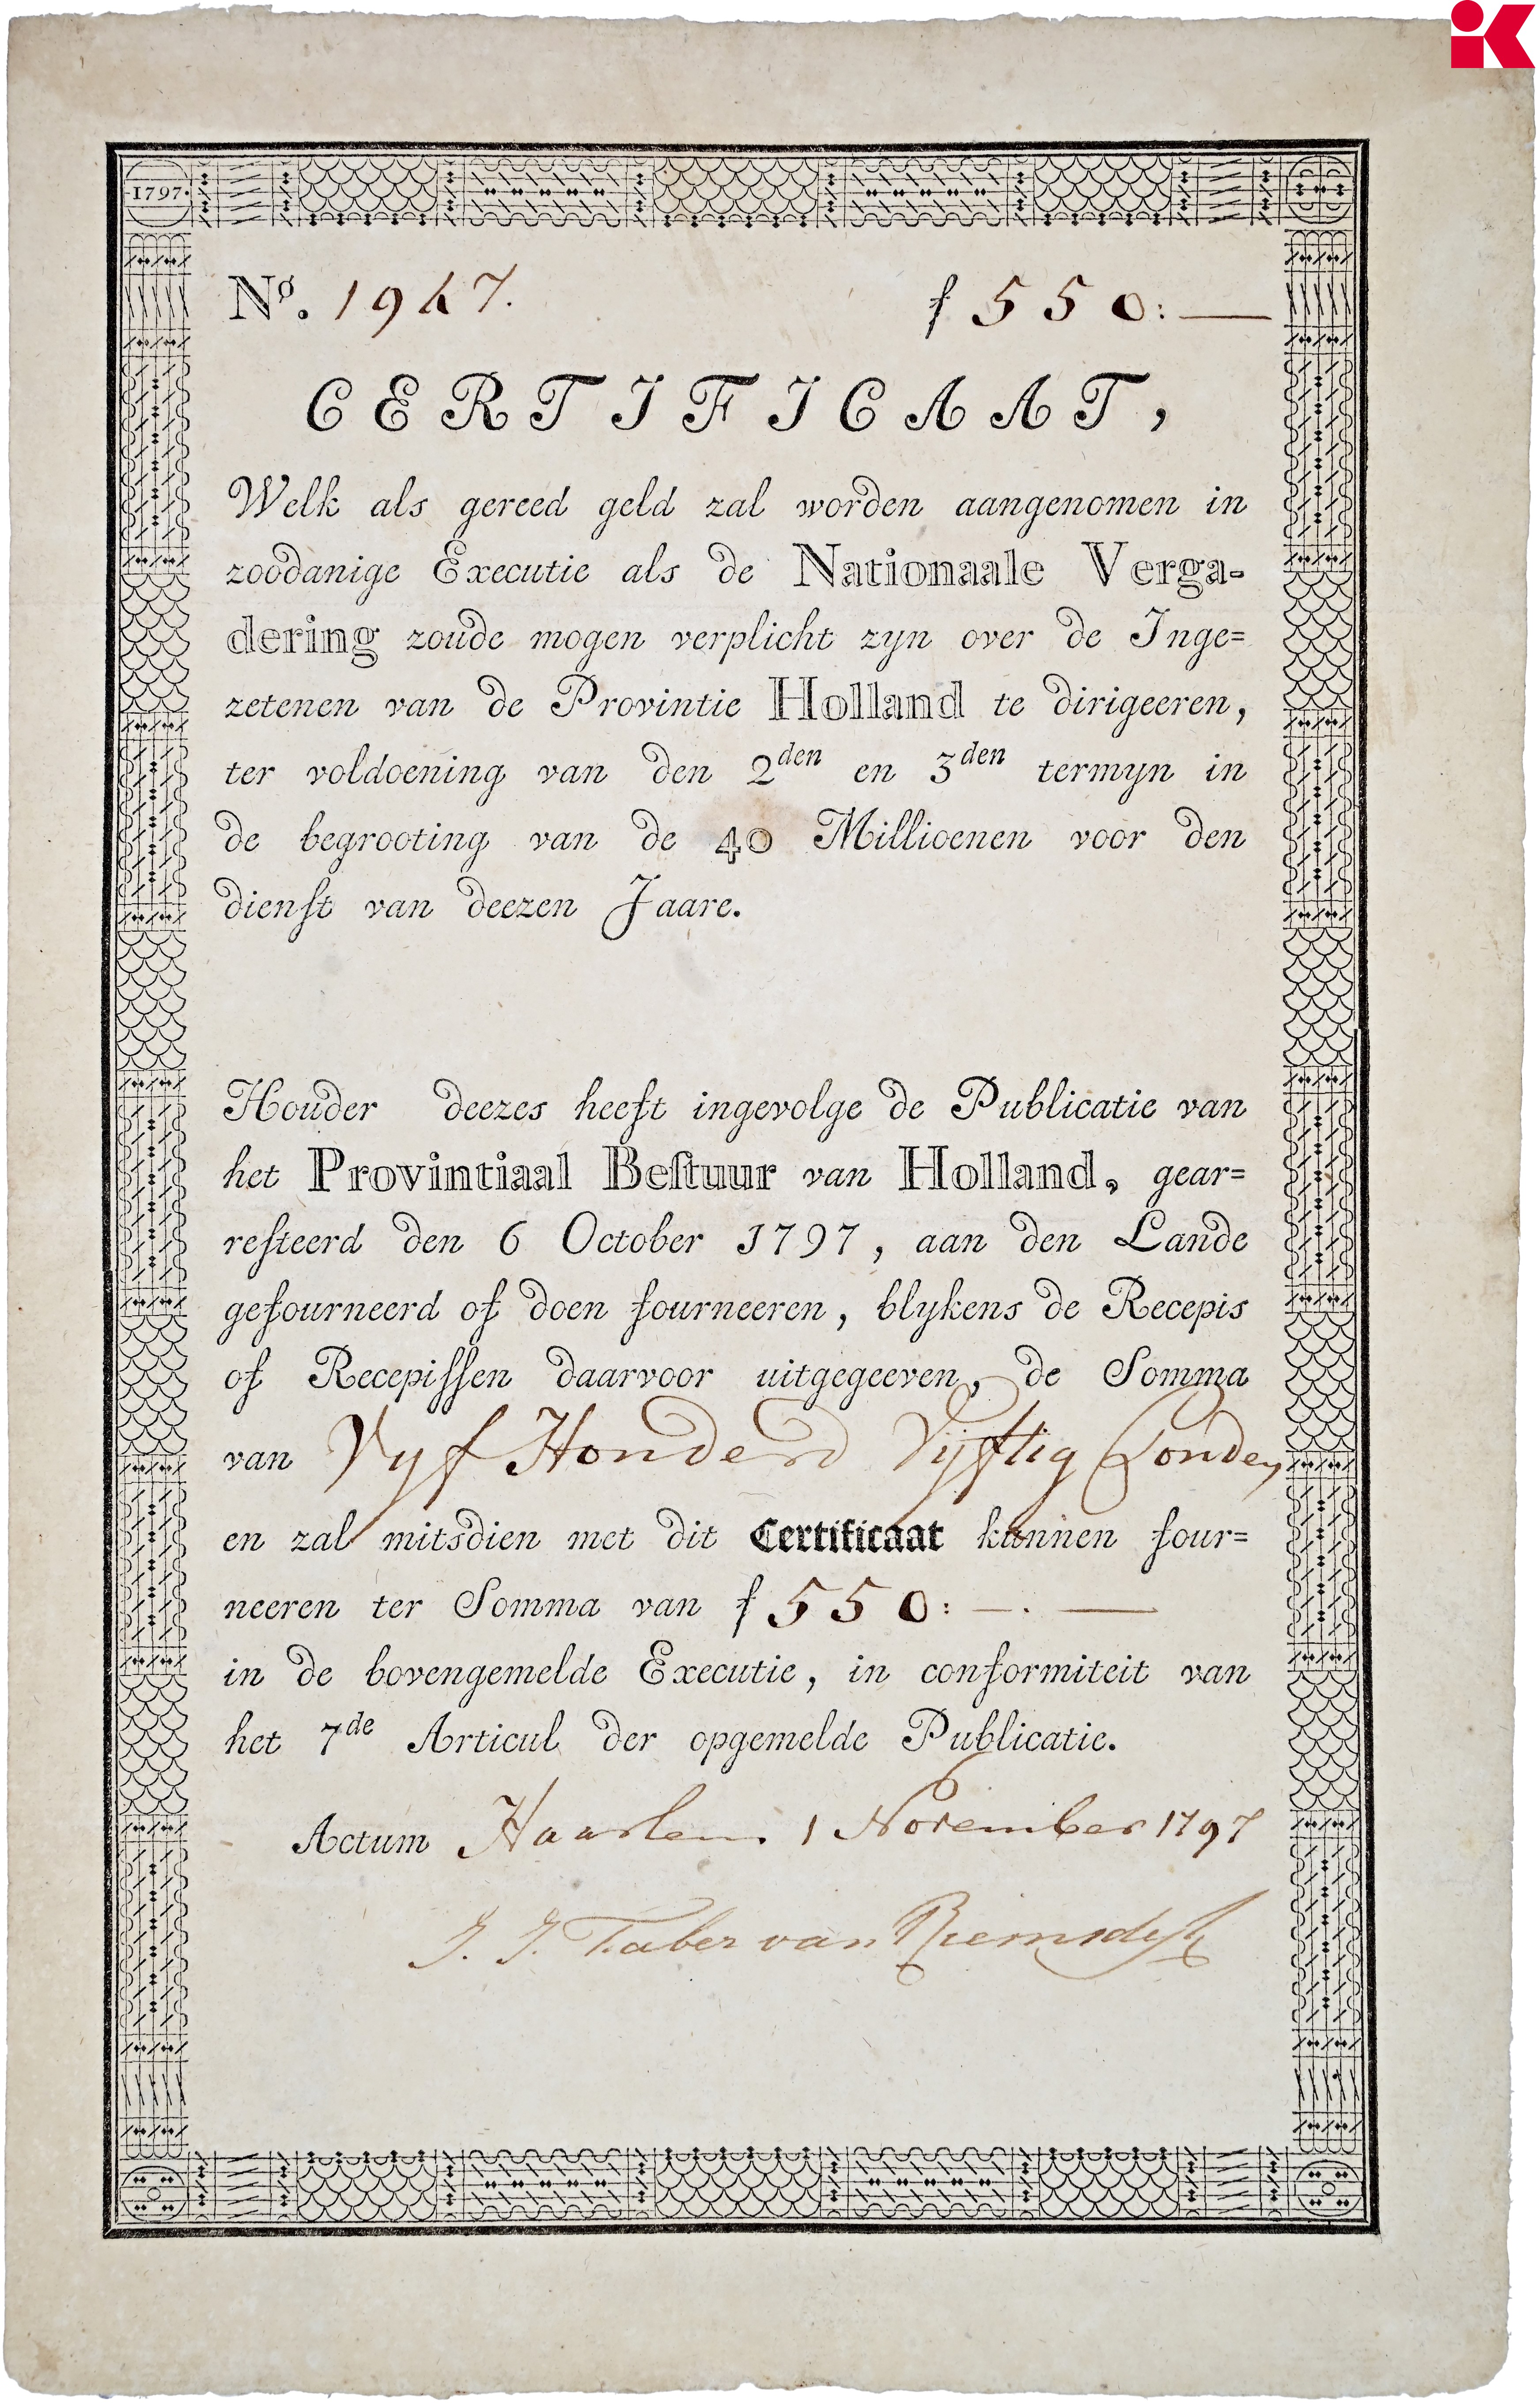 1797.
Nº. 1947. f 550:—
CERTIFICAAT,
Welk als gereed geld zal worden aangenomen in
zoodanige Executie als de Nationaale Verga-
dering zoude mogen verplicht zyn over de Inge=
zetenen van de Provintie Holland te dirigeeren,
ter voldoening van den 2den en 3den termyn in
de begrooting van de 40 Millioenen voor den
dienſt van deezen Jaare.
Houder deezes heeft ingevolge de Publicatie van
het Provintiaal Beſtuur van Holland, gear=
reſteerd den 6 October 1797, aan den Lande
gefourneerd of doen fourneeren, blykens de Recepis
of Recepiſſen daarvoor uitgegeeven, de Somma
van Vyf Honderd Vijftig Ponden
en zal mitsdien met dit Certificaat kunnen four=
neeren ter Somma van f 550:—.—
in de bovengemelde Executie, in conformiteit van
het 7de Articul der opgemelde Publicatie.
Actum Haarlem. 1 November 1797
J. J. Faber van Riemsdyk